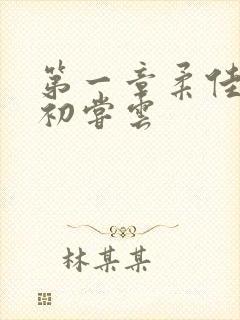 第一章柔佳
初尝云
林某某